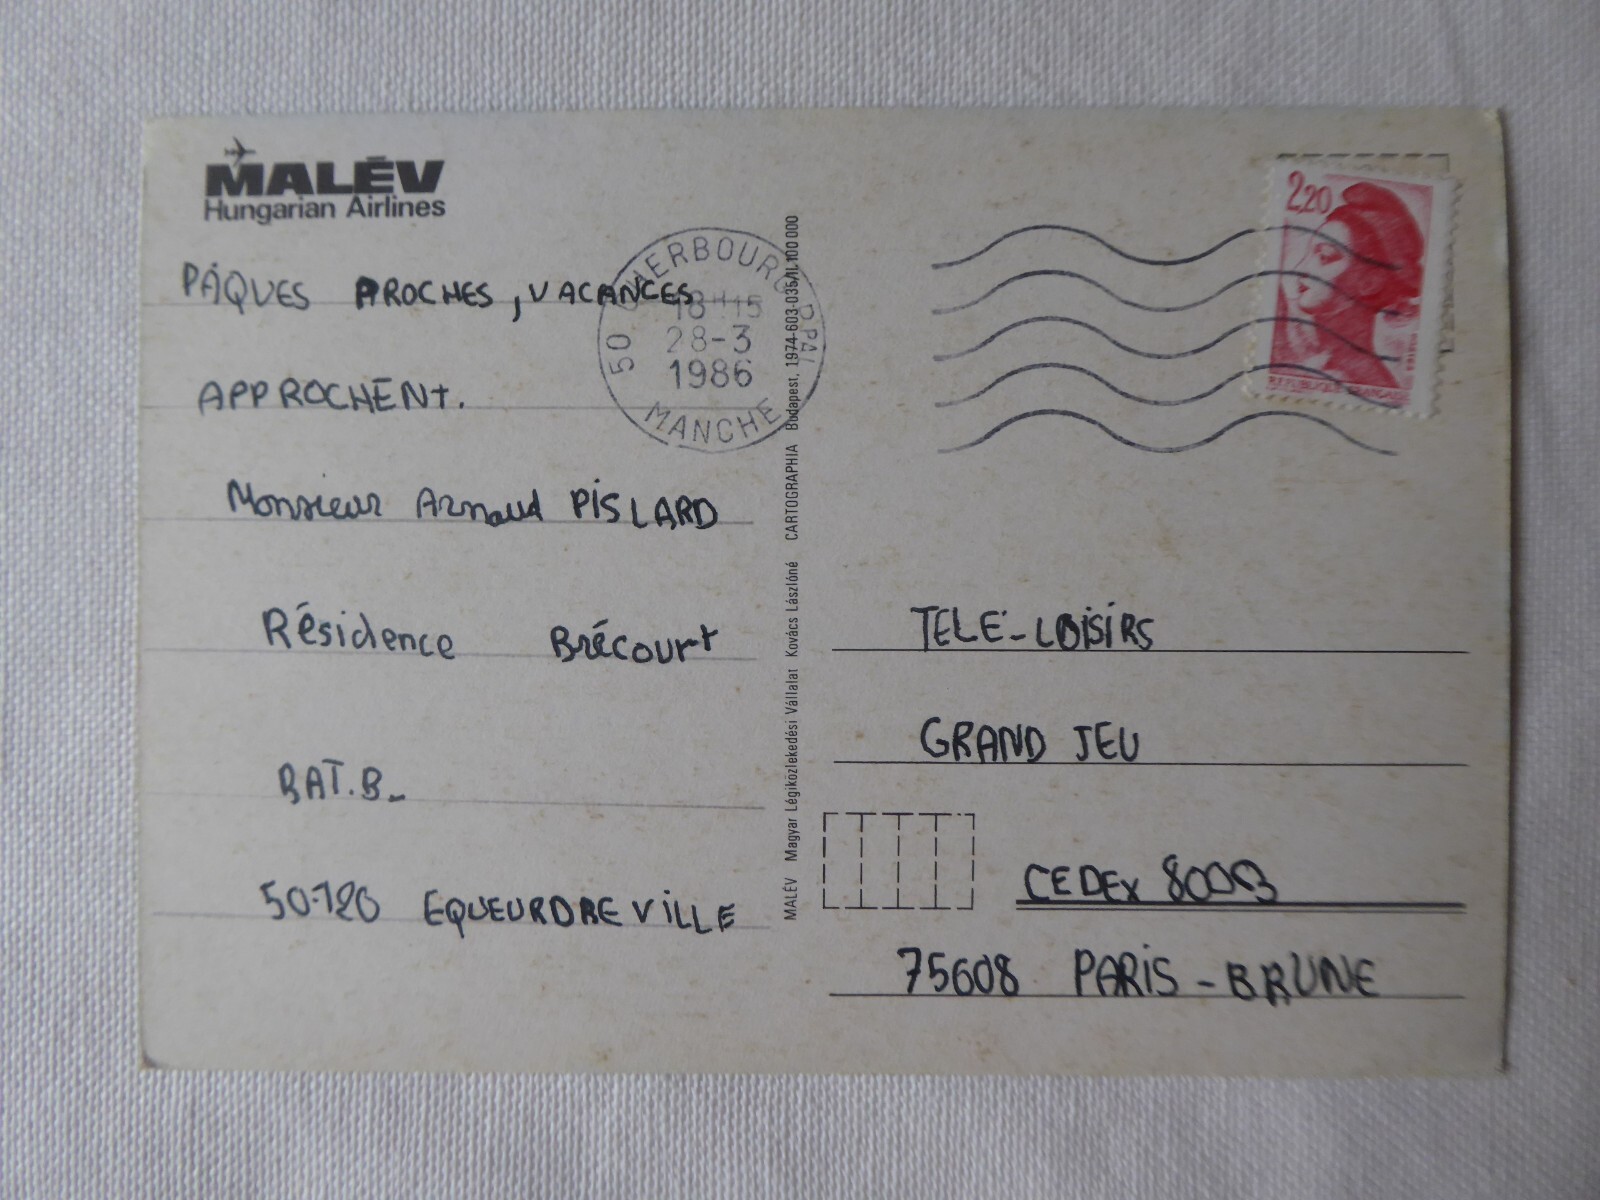 MALÉV
Hungarian Airlines
PÂQUES PROCHES, VACANCES
APPROCHENT.
Monsieur Arnaud PISLARD
Résidence Brécourt
BAT.B_
50.120 EQUEURDREVILLE
50 CHERBOURG PPAL
18H15
28-3
1986
MANCHE
MALÉV Magyar Légiközlekedési Vállalat Kovács Lászlóné CARTOGRAPHIA Budapest, 1974-603-035/II, 100 000
2,20
REPUBLIQUE FRANÇAISE
TELE-LOISIRS
GRAND JEU
CEDEX 8003
75608 PARIS - BRUNE